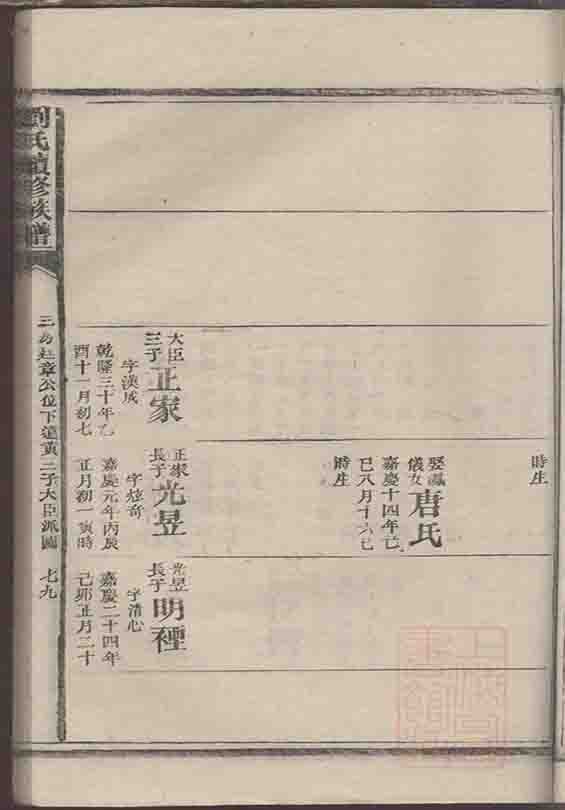 時生
娶□
儀女
唐氏
嘉慶十四年己
巳八月十六巳
時生
大臣
三子
正家
字漢成
乾隆三十年乙
酉十一月初七
正家
長子
光昱
字炫奇
嘉慶元年丙辰
正月初一寅時
光昱
長子
明禋
字清心
嘉慶二十四年
己卯正月二十
劉氏續修族譜
公位下達黃三子大臣派圖
七九